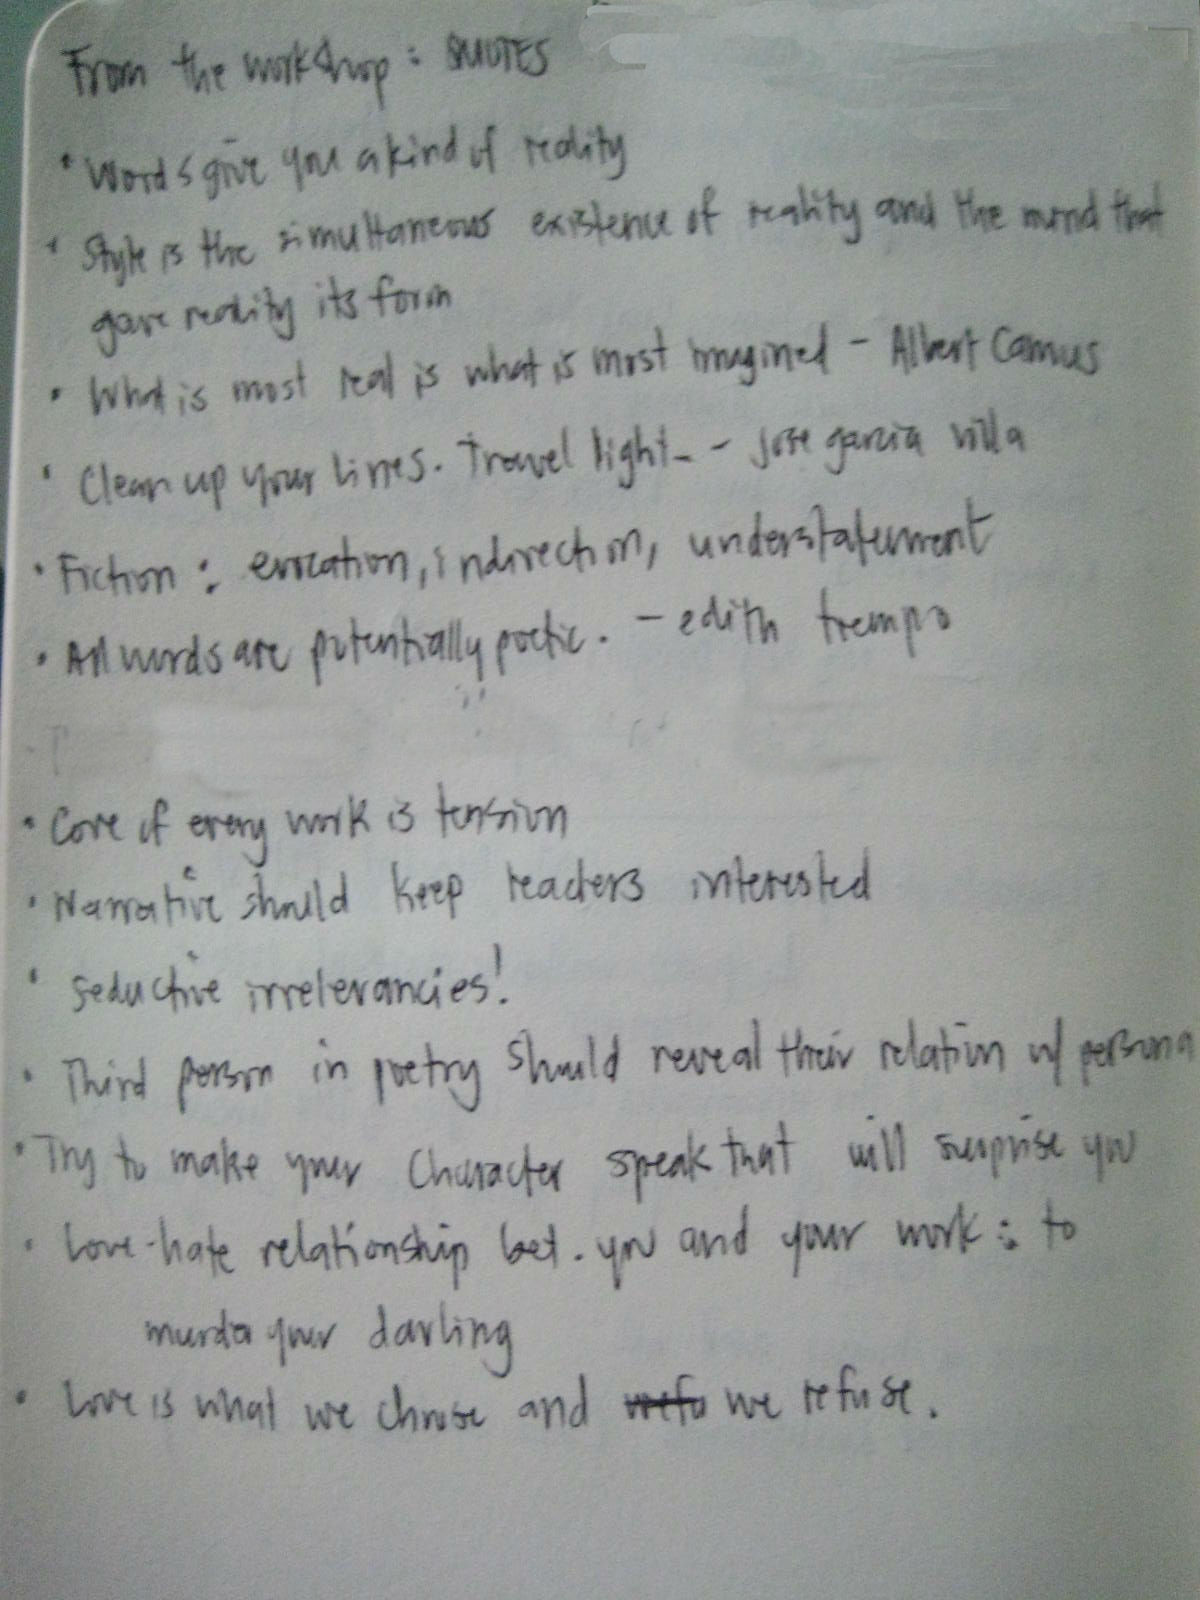 From the workshop : QUOTES
• Words give you a kind of reality
• Style is the simultaneous existence of reality and the mind that
gave reality its form
• What is most real is what is most imagined - Albert Camus
• Clean up your lines. Travel light. - jose garcia villa
• Fiction : evocation, indirection, understatement
• All words are potentially poetic. - edith tiempo
• Core of every work is tension
• Narrative should keep readers interested
• seductive irrelevancies!
• Third person in poetry should reveal their relation w/ persona
• Try to make your character speak that will surprise you
• Love-hate relationship bet. you and your work : to
murder your darling
• Love is what we choose and we refuse.